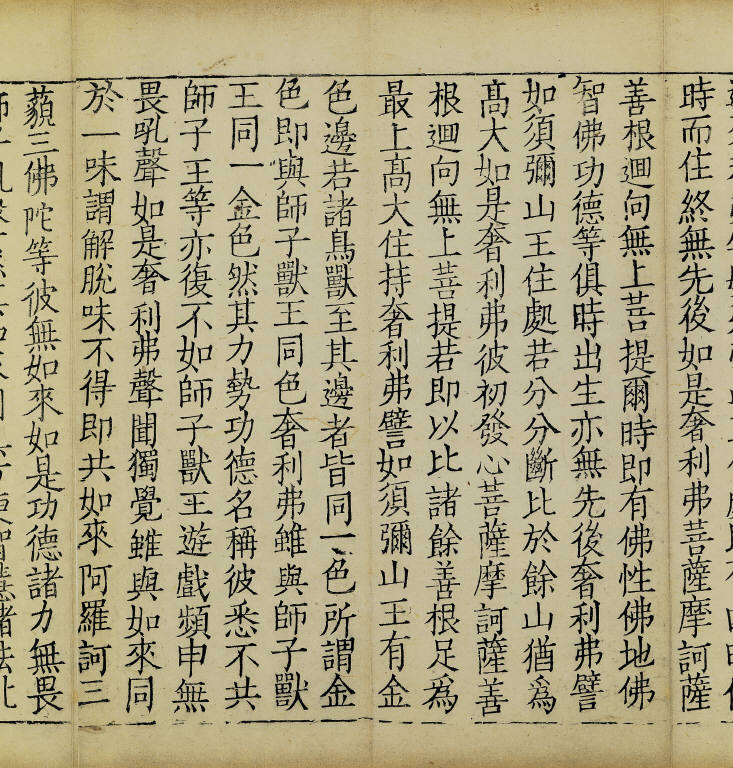 時而住終無先後如是奢利弗菩薩摩訶薩
善根迴向無上菩提爾時即有佛性佛地佛
智佛功德等俱時出生亦無先後奢利弗譬
如須彌山王住處若分分斷比於餘山猶為
高大如是奢利弗彼初發心菩薩摩訶薩善
根迴向無上菩提若即以比諸餘善根足為
最上高大住持奢利弗譬如須彌山王有金
色邊若諸鳥獸至其邊者皆同一色所謂金
色即與師子獸王同色奢利弗雖與師子獸
王同一金色然其力勢功德名稱彼悉不共
師子王等亦復不如師子獸王遊戲頻申無
畏吼聲如是奢利弗聲聞獨覺雖與如來同
於一味謂解脫味不得即共如來阿羅訶三
藐三佛陀等彼無如來如是功德諸力無畏